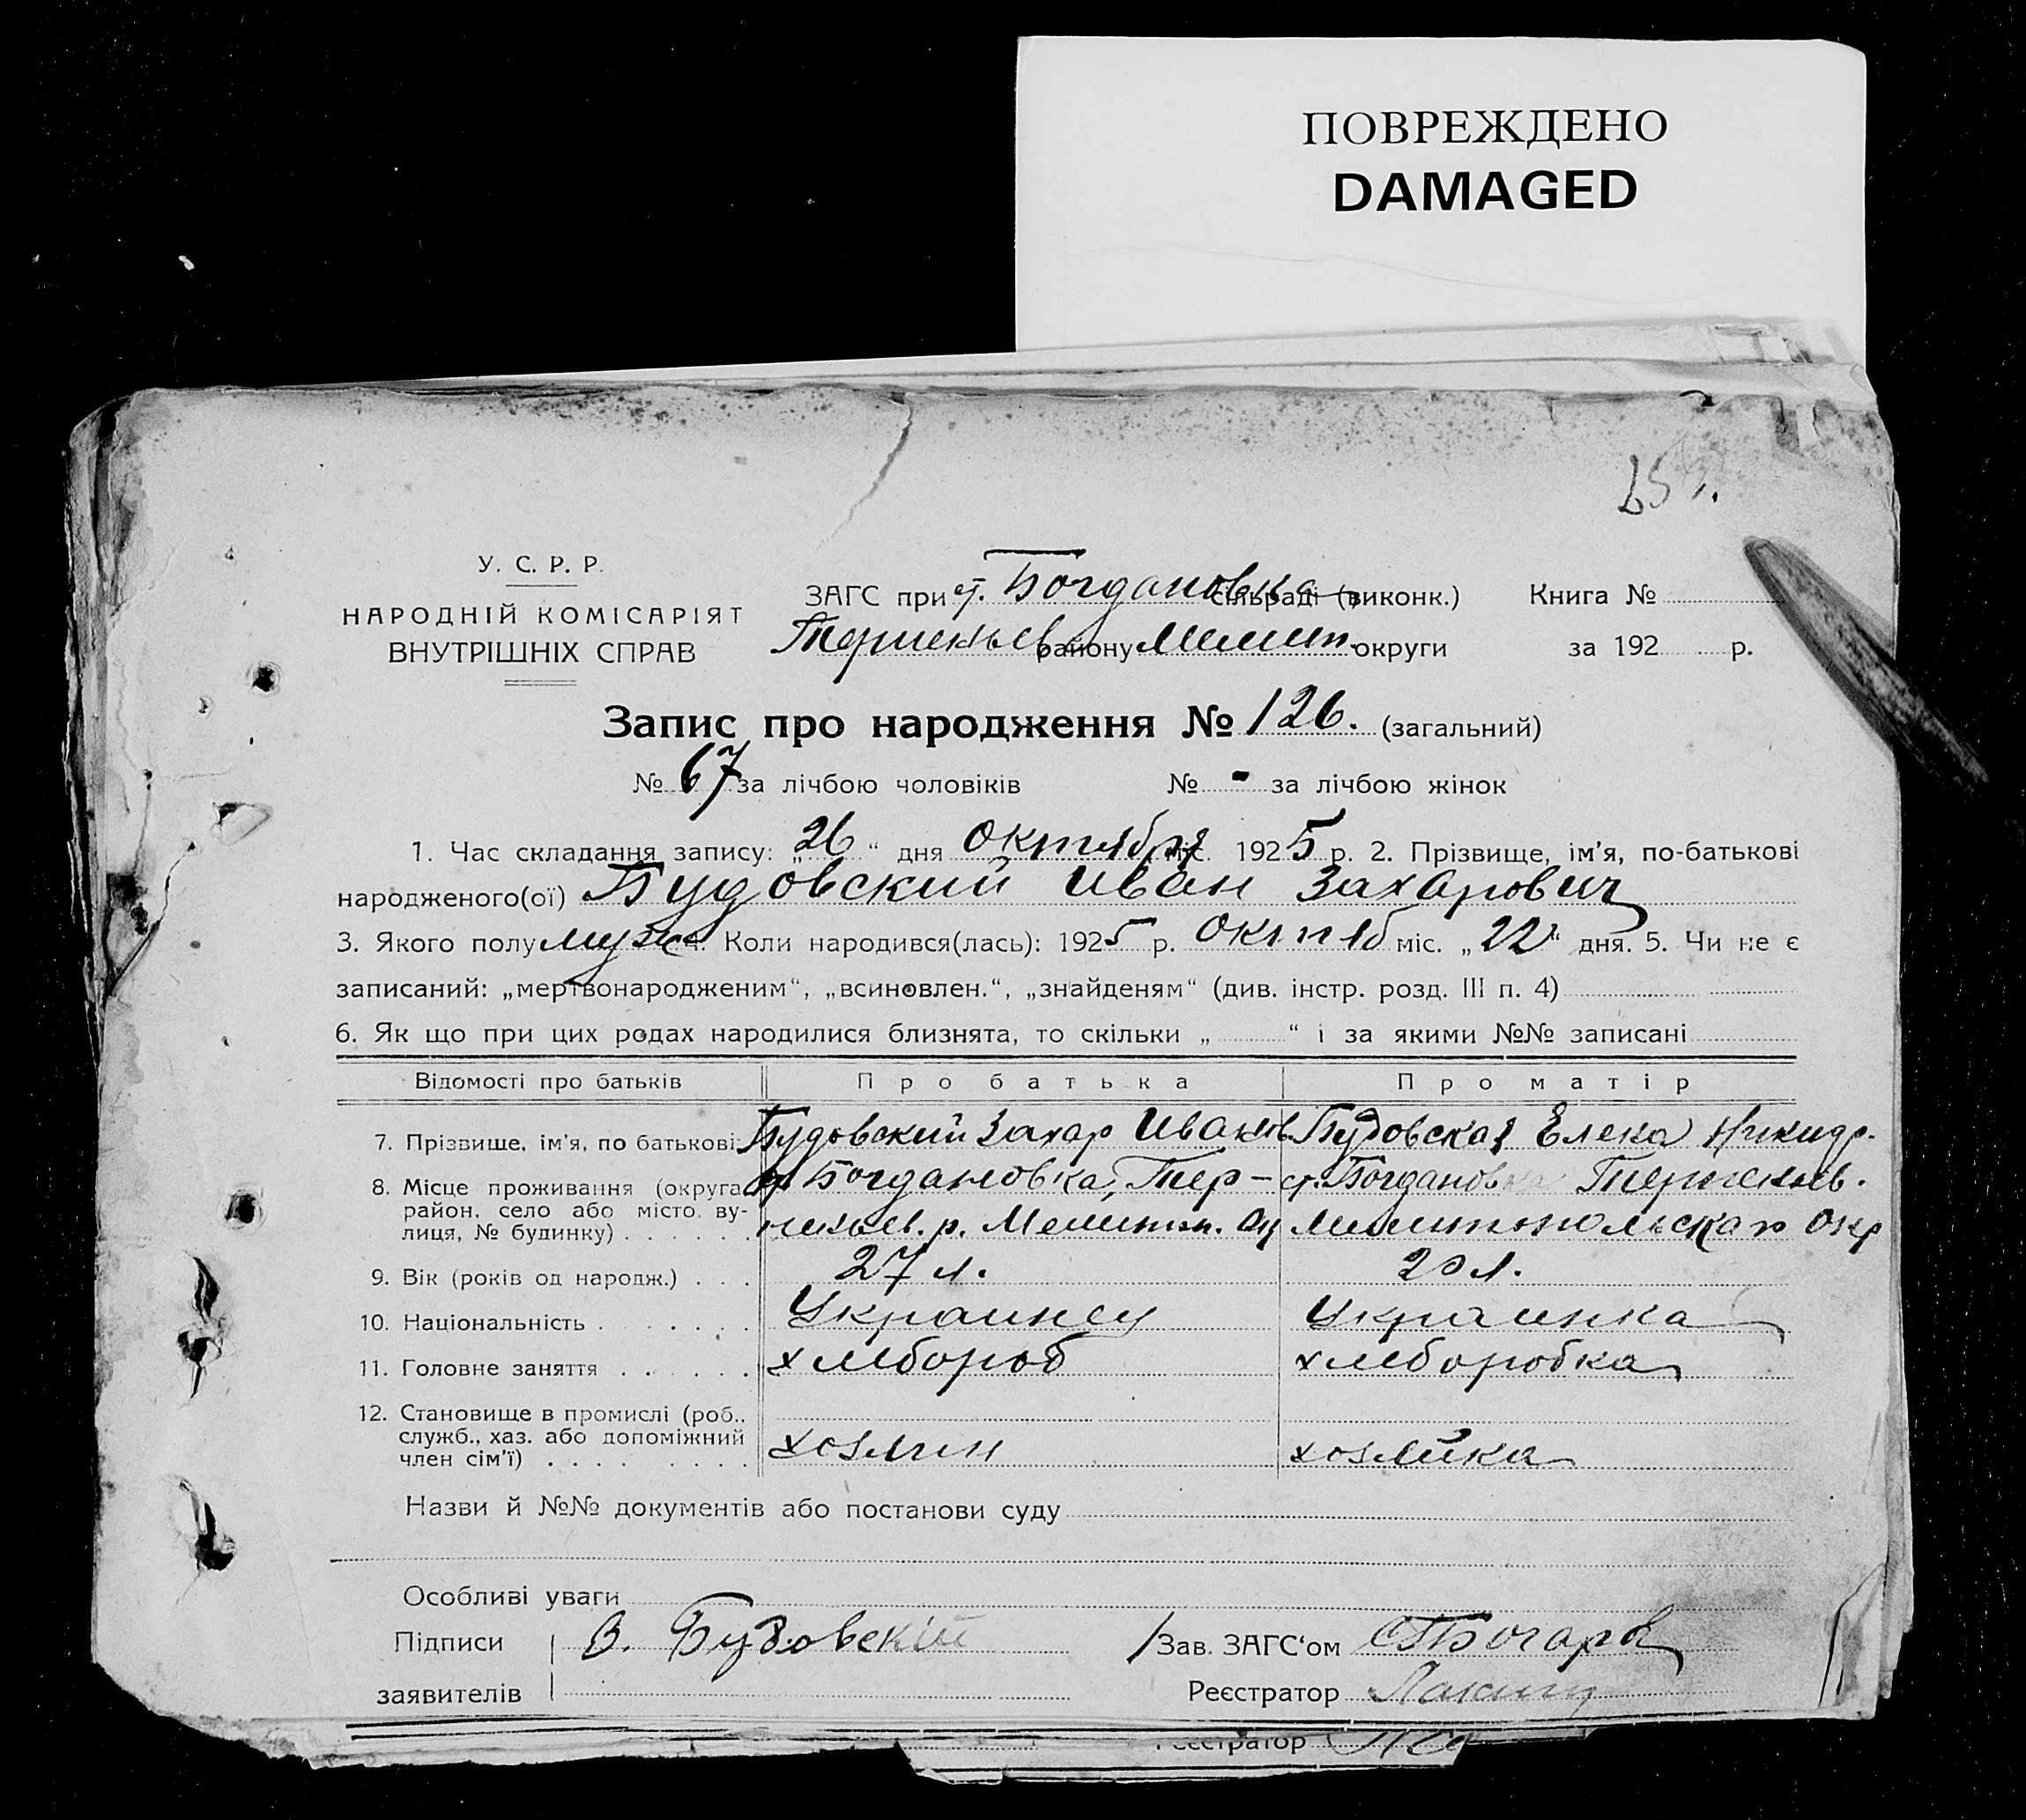 ПОВРЕЖДЕНО
DAMAGED
У. С. Р. Р.
НАРОДНІЙ КОМІСАРІЯТ
ВНУТРІШНІХ СПРАВ
ЗАГС при с. Богдановка сільраді (виконк.)
района Мелит. округи
Книга №
за 192 р.
Запис про народження № 126. (загальний)
№ 67 за лічбою чоловіків № - за лічбою жінок
1. Час складання запису: „26“ дня Октября міс. 1925 р. 2. Прізвище, ім'я, по-батькові
народженого(ої) Будовский Иван Захарович
3. Якого полу муж. Коли народився(лась): 1925 р. Октяб міс. „22“ дня. 5. Чи не є
записаний: „мертвонародженим“, „всиновлен.“, „знайденям“ (див. інстр. розд. III п. 4)
6. Як що при цих родах народилися близнята, то скільки „ “ і за якими №№ записані
Відомості про батьків Про батька Про матір
7. Прізвище, ім'я, по батькові Будовский Захар Иванов. Будовская Елена
8. Місце проживання (округа район, село або місто, вулиця, № будинку) с. Богдановка, р. Мелитоп. с. Богдановка Мелитопольская Окр
9. Вік (років од народж.) 27 л. 20 л.
10. Національність Украинец Украинка
11. Головне заняття хлебороб хлеборобка
12. Становище в промислі (роб., служб., хаз. або допоміжний член сім'ї) хозяин хозяйка
Назви й №№ документів або постанови суду
Особливі уваги
Підписи З. Будовскій Зав. ЗАГС'ом
заявителів Реєстратор
Реєстратор